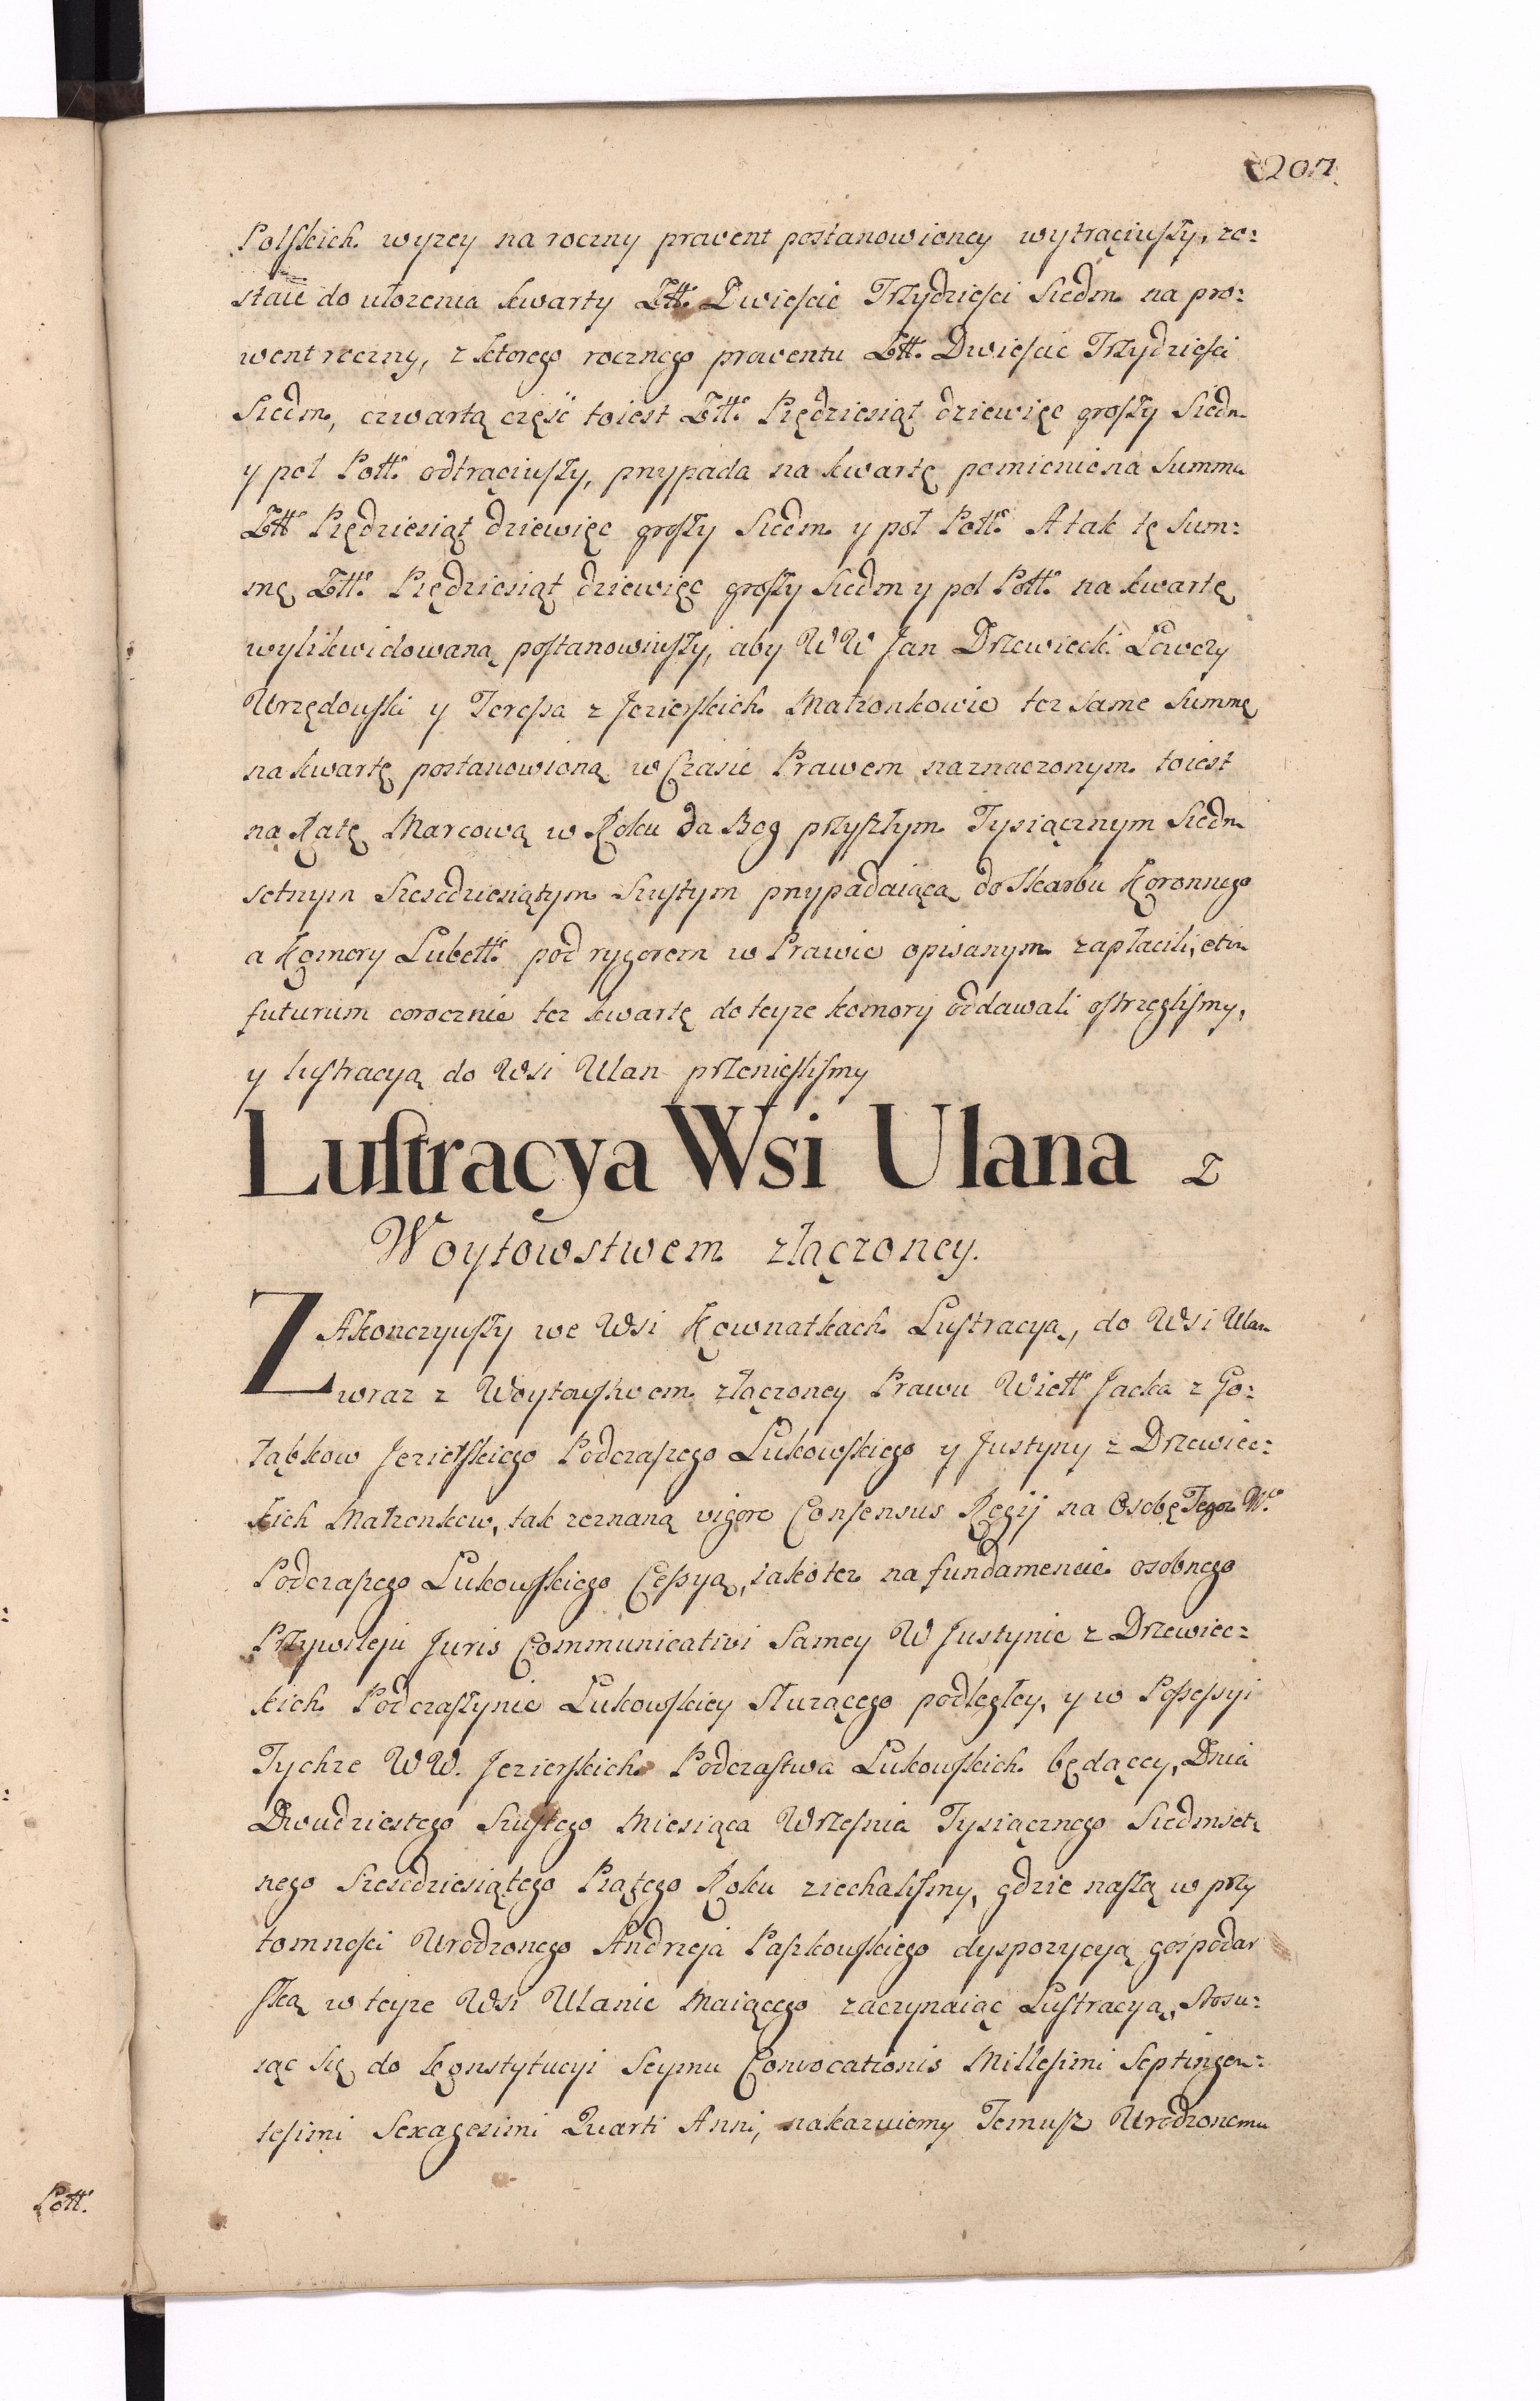 207
Polſkich wyzey na roczny prowent postanowioney wytrąciuſzy, zo:
staie do ułozenia kwarty Złł. Dwieſcie Trzydzieſci Siedm na pro:
went roczny, z ktorego rocznego prowentu Złł. Dwieſcie Trzydzieſci
Siedm, czwartą część toiest Złł. Piędziesiąt dziewięc groſzy Siedm
y pol Poll. odtrąciuſzy, przypada na kwartę pomieniona Summa
Złł. Piędziesiąt dziewięc groſzy Siedm y pol Poll. A tak tę Sum:
mę Złł. Piędziesiąt dziewięc groſzy Siedm y pol Poll. na kwartę
wylikwidowaną poſtanowiuſzy, aby WW Jan Drzewiecki Łowczy
Urzędowſki y Tereſsa z Jezierſkich Małzonkowie tez same Summę
na kwartę postanowioną w Czasie Prawem naznaczonym toiest
na Ratę Marcową w Roku da Bog przyſzłym Tysiącznym Siedm
setnym Szescdziesiątym Szuſtym przypadaiącą do Skarbu Koronnego
a Komory Lubell. pod rygorem w Prawie opisanym zapłacili, et in
futurum corocznie tez kwartę do teyze komory oddawali oſtrzegliſmy,
y luſtracyą do Wsi Ulan przenieſliſmy
Luſtracya Wsi Ulana z
Woytowstwem złączoney.
ZAkonczyuſzy we Wsi Kownatkach Luſtracyą, do Wsi Ulan
wraz z Woytowſtwem złączoney Prawu Wiell. Jacka z Go:
łąbkow Jezierſkiego Podczaſzego Łukowſkiego y Justyny z Drzewiec:
kich Małzonkow, tak zeznaną vigore Conſensus Regij na Osobę Tegoz W.
Podczaſzego Łukowſkiego Ceſsyą, iako tez na fundamencie osobnego
Przywileju Juris Communicativi Samey W Justynie z Drzewiec:
kich Podczaſzynie Łukowſkiey Sluzącego podległey, y w Poſseſsyi
Tychze WW. Jezierſkich Podczaſtwa Łukowſkich będącey, Dnia
Dwudziestego Szuſtego Miesiąca Wrzeſnia Tysiącznego Siedmset:
nego Szescdziesiątego Piątego Roku ziechaliſmy, gdzie naſzą w przy
tomnoſci Urodzonego Andrzeja Paſzkowſkiego dyspozycyą gospodar
ſką w teyze Wsi Ulanie Maiącego zaczynaiąc Luſtracyą, Stosu:
iąc się do Konstytucyi Seymu Convocationis Milleſimi Septingen:
teſimi Sexagesimi Quarti Anni, nakazuiemy Temuſz Urodzonemu
Poll.